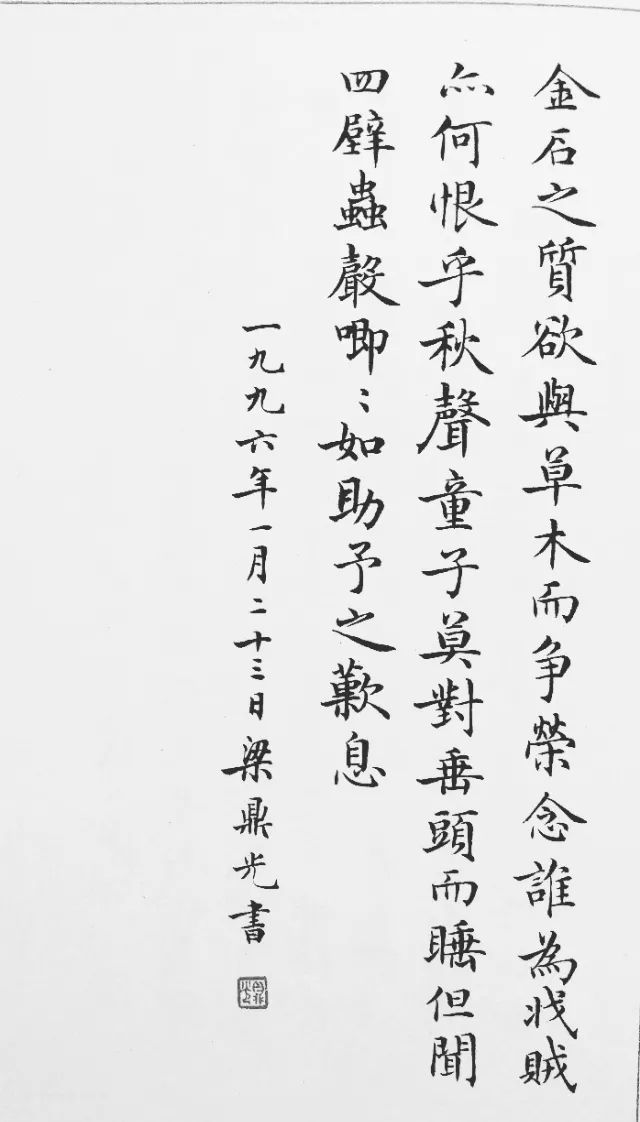 金石之質欲與草木而争榮念誰為戕賊
亦何恨乎秋聲童子莫對垂頭而睡但聞
四壁蟲聲唧〻如助予之歎息
一九九六年一月二十三日梁鼎光書